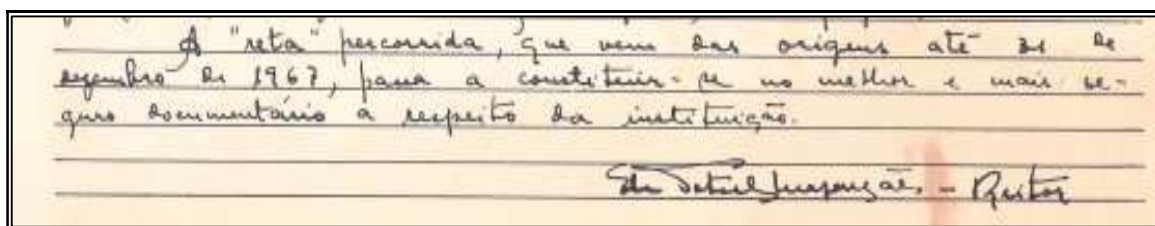 A "reta" percorrida, que vem das origens até 31 de
dezembro de 1967, passa a constituir-se no melhor e mais se-
guro documentário a respeito da instituição.
Reitor